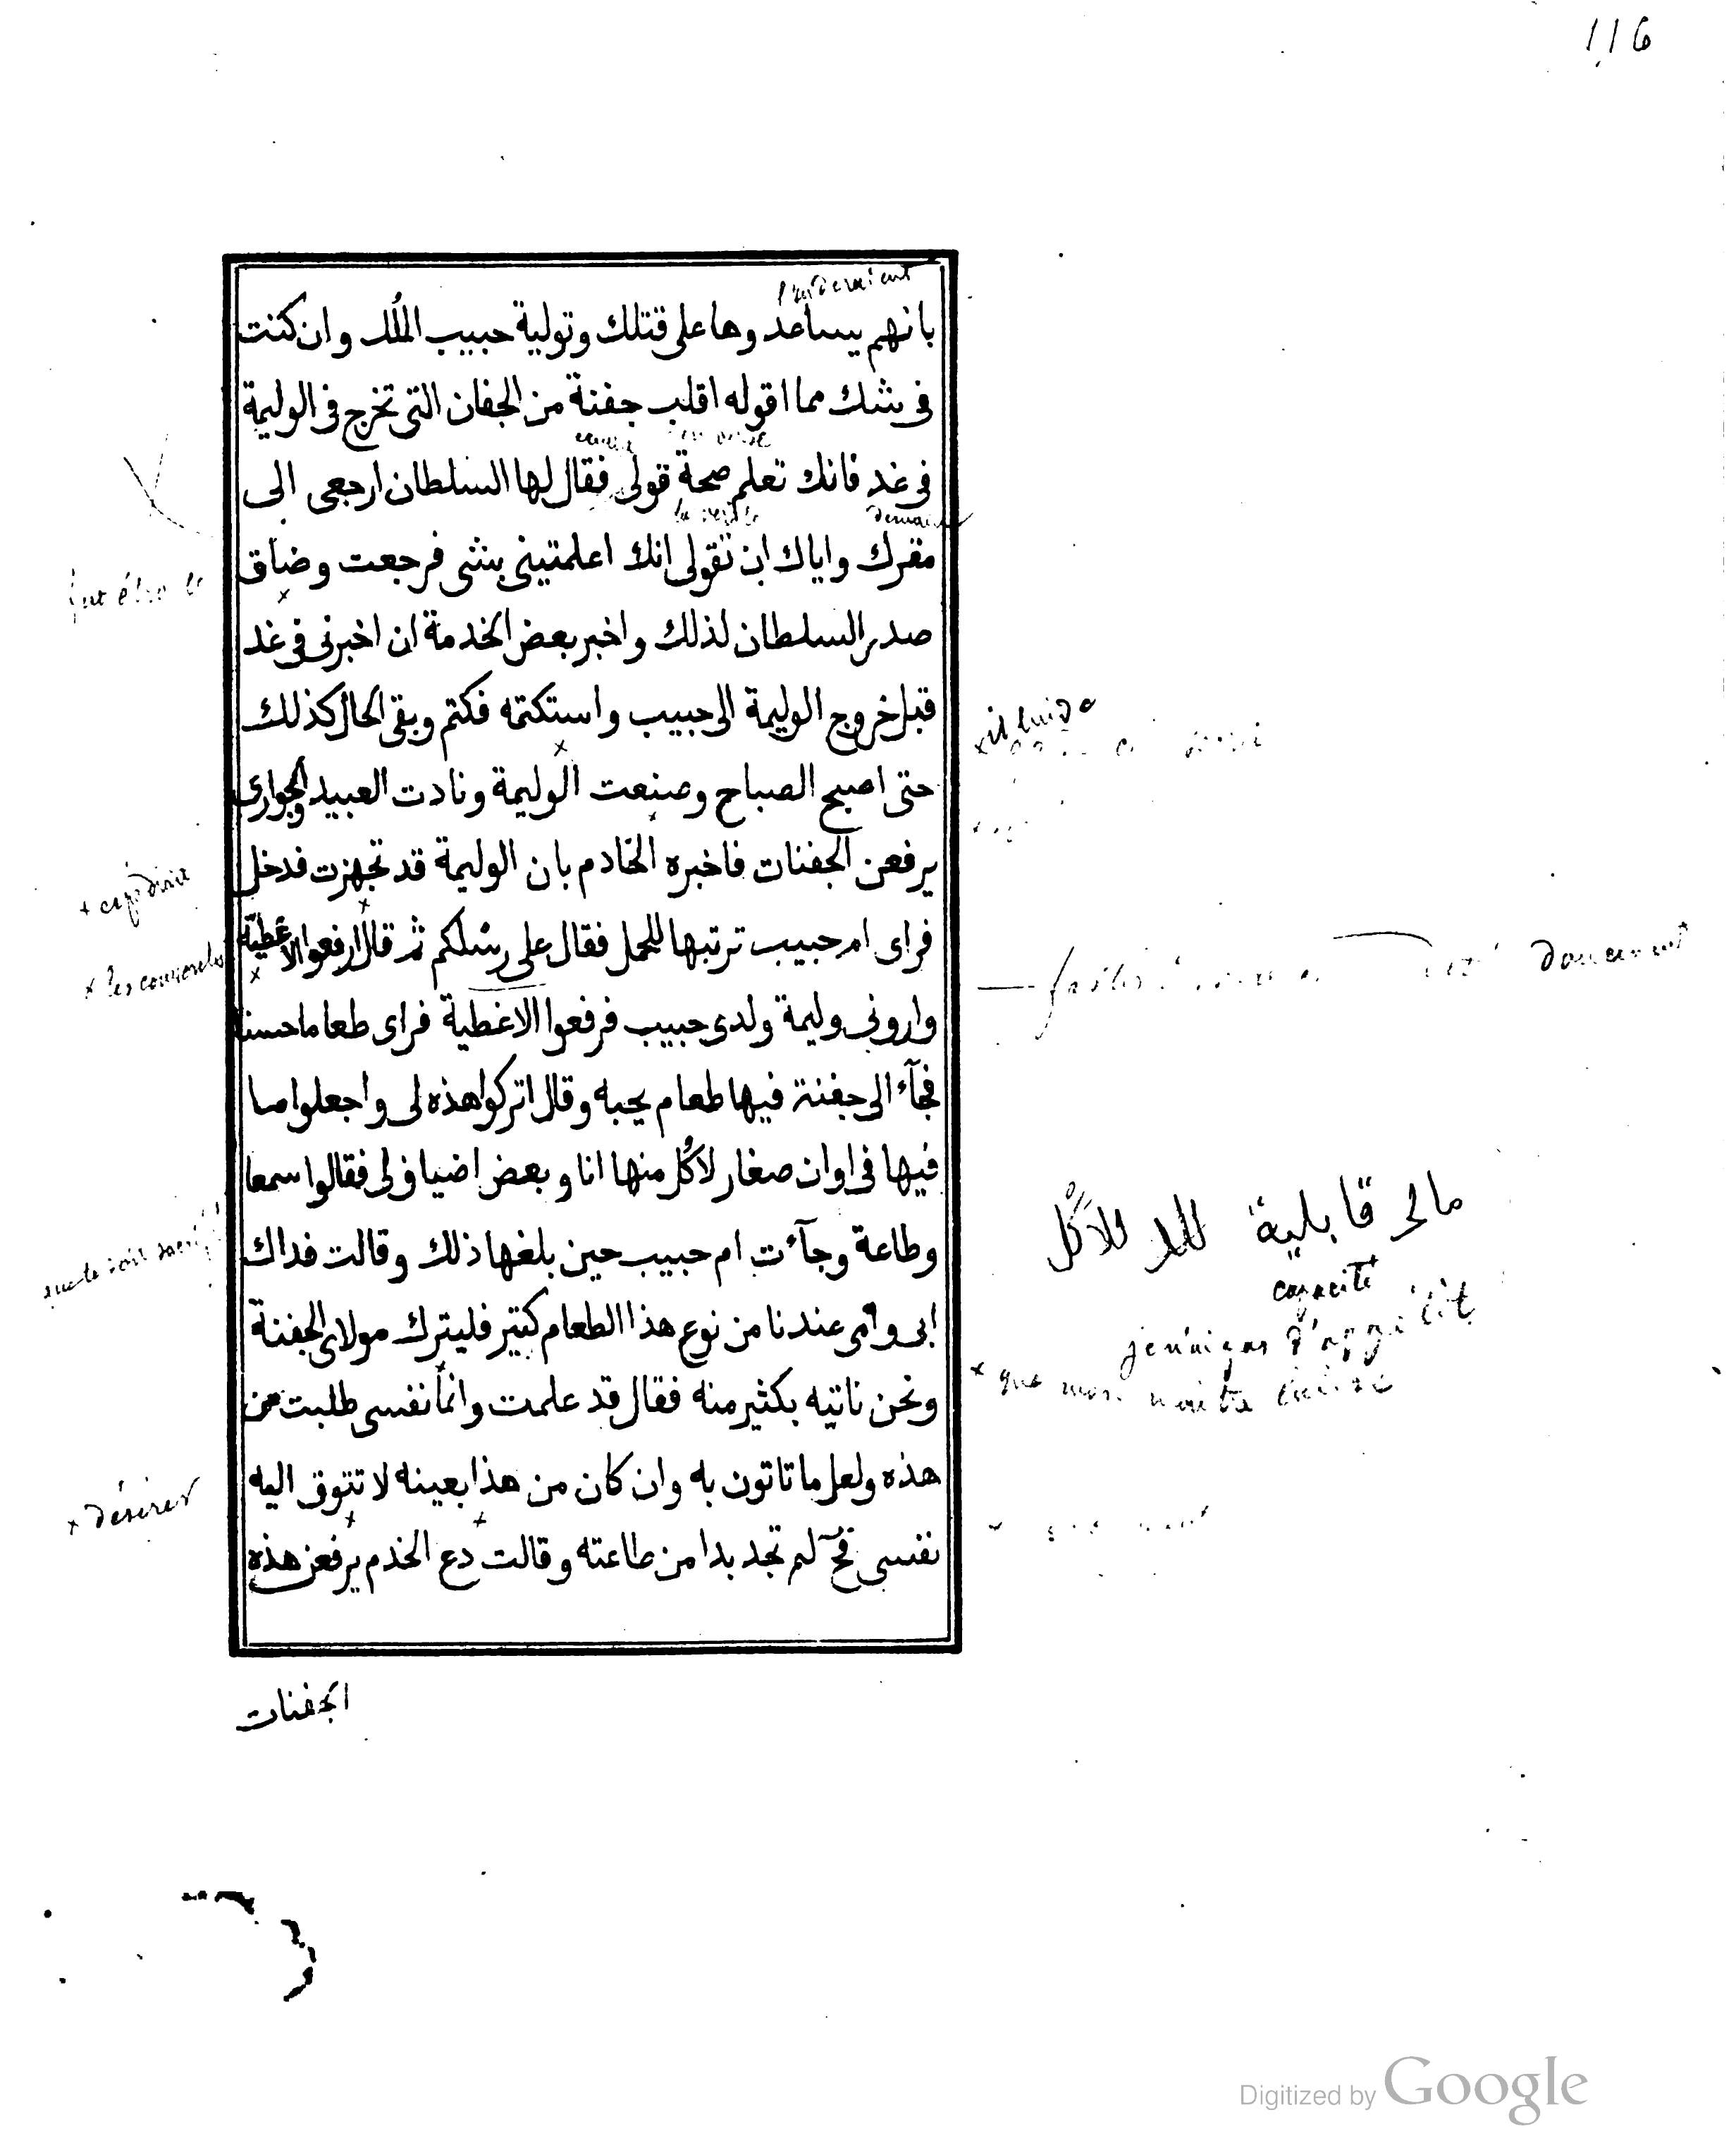 116
بانهم يساعدوها على قتلك وتولية حبيب الملك وان كنت
فى شك مما اقوله اقلب جفنة من الجفان التى تخرج فى الوليمة
فى غد فانك تعلم صحة قولى فقال لها السلطان ارجعى الى
مقرك واياك ان تقولى انك اعلمتينى بشى فرجعت وضاق
صدر السلطان لذلك واخبر بعض الخدمة ان اخبرنى فى غد
قبل خروج الوليمة الى حبيب واستكتمه فكتم وبقى الحال كذلك
حتى اصبح الصباح وصنعت الوليمة ونادت العبيد والجوارى
يرفعن الجفنات فاخبره الخادم بان الوليمة قد تجهزت فدخل
فراى ام حبيب ترتبها للحمل فقال على رسلكم ثم قال ارفعوا الاغطية
وارونى وليمة ولدى حبيب فرفعوا الاغطية فراى طعاما حسنا
فجآء الى جفنة فيها طعام يحبه وقال اتركوا هذه لى واجعلوا ما
فيها فى اوان صغار لاكُل منها انا وبعض اضيافى لى فقالوا سمعا
وطاعة وجآءت ام حبيب حين بلغها ذلك وقالت فداك
ابى وامى عندنا من نوع هذا الطعام كتير فليترك مولاى الجفنة
ونحن ناتيه بكثير منه فقال قد علمت وانما نفسى طلبت من
هذه ولعل ما تاتون به وان كان من هذا بعينه لا تتوق اليه
نفسى فحٓ لم تجد بدا من طاعته وقالت دع الخدم يرفعن هذه
الجفنات
demain
fut étroite
+ c'e𝑠t à dire
x les couvercles
doucement
مالى قابلية للاكل
capacité
je n'ai pas d'appétit
x que mon maître laisse
x désirer
Digitized by Google